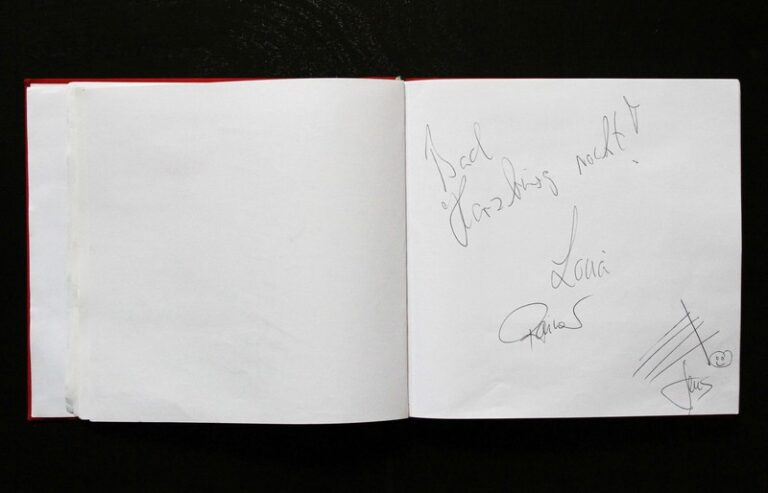 Bad
Harzburg rockt!
Lona
Rainer
Jens